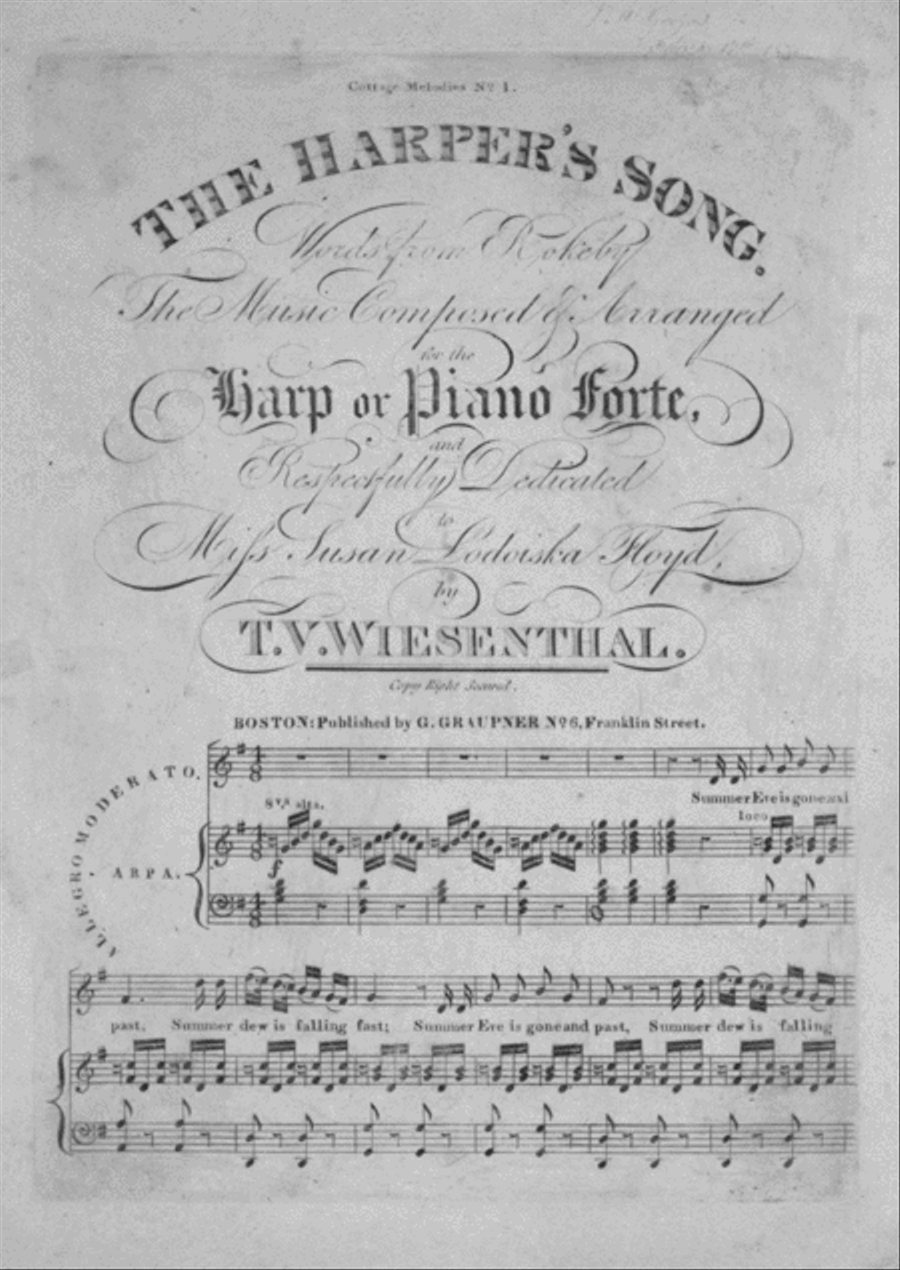 Cottage Melodies No 1.
THE HARPER'S SONG.
Words from Rokeby
The Music Composed & Arranged
for the
Harp or Piano Forte,
and
Respectfully Dedicated
to
Miss Susan Lodoiska Floyd,
by
T. V. WIESENTHAL.
Copy Right Secured.
BOSTON: Published by G. GRAUPNER No 6, Franklin Street.
ALLEGRO MODERATO.
8va alta.
Summer Eve is gone and
loco
ARPA.
past, Summer dew is falling fast; Summer Eve is gone and past, Summer dew is falling